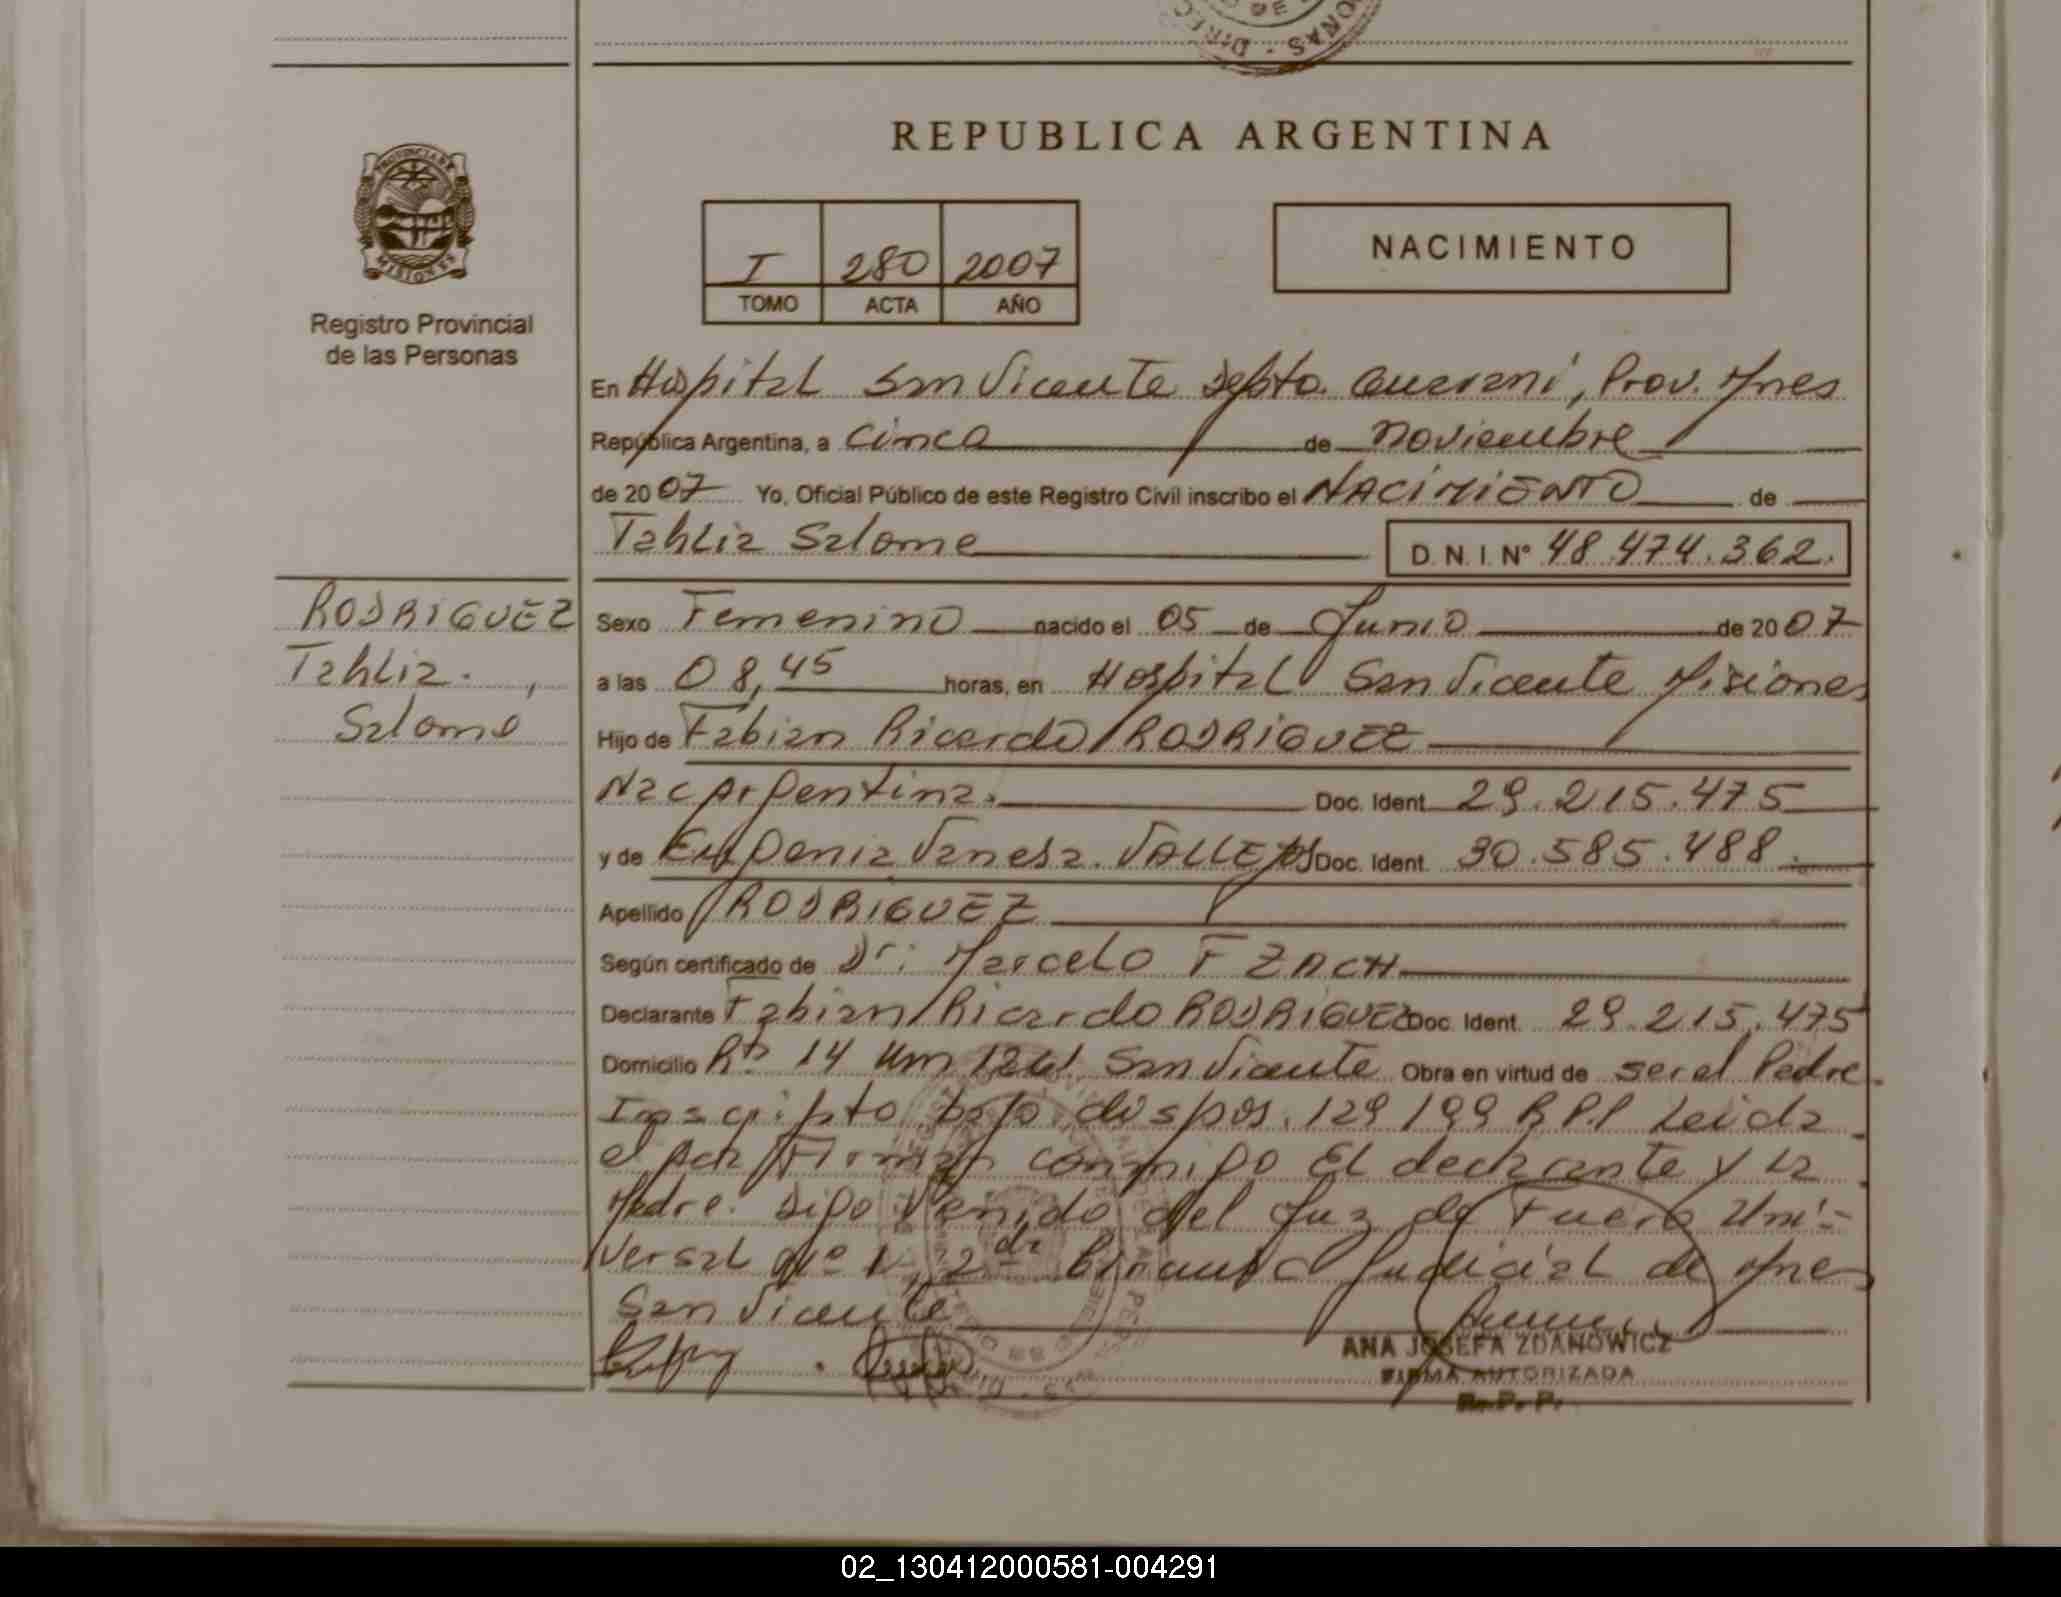 REPUBLICA ARGENTINA
PROVINCIA DE
MISIONES
Registro Provincial
de las Personas
I 280 2007
TOMO ACTA AÑO
NACIMIENTO
En Hospital San Vicente Depto. Guarani, Prov. Mnes
República Argentina, a cinco de noviembre
de 2007 Yo, Oficial Público de este Registro Civil inscribo el NACIMIENTO de
Tahlia Salome D. N. I. Nº 48.474.362.
RODRIGUEZ
Tahlia.,
Salome
Sexo Femenino nacido el 05 de Junio de 2007
a las 08,45 horas, en Hospital San Vicente Misiones
Hijo de Fabian Ricardo RODRIGUEZ
Nac Argentina. Doc. Ident. 29.215.475
y de Eugenia Vanesa VALLEJOS Doc. Ident. 30.585.488.
Apellido RODRIGUEZ
Según certificado de Dr: Marcelo F ZACH
Declarante Fabian Ricardo RODRIGUEZ Doc. Ident. 29.215.475
Domicilio Rta 14 Km San Vicente Obra en virtud de ser el Padre.
Inscripto bajo dispos. 129/99 R.P.P Leida
el acta Firman conmigo El declarante y La
Madre. Digo Venido del Juz de Fuero Uni-
versal Nº 1, 2da Judicial de Mnes
San Vicente
ANA JOSEFA ZDANOWICZ
FIRMA AUTORIZADA
R. P. P.
02_130412000581-004291